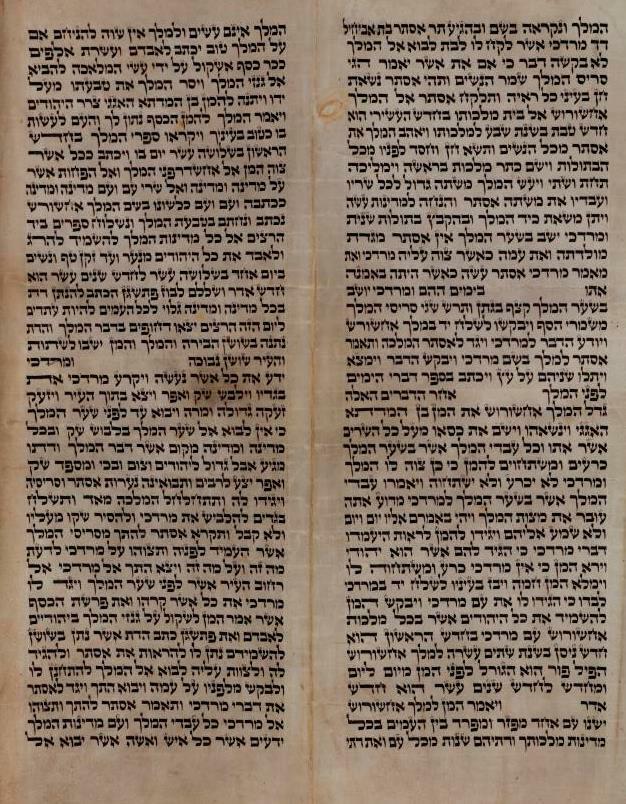 המלך ונקראה בשם ובהגיע תר אסתר בת אביחיל
דד מרדכי אשר לקח לו לבת לבוא אל המלך
לא בקשה דבר כי אם את אשר יאמר הגי
סריס המלך שמר הנשים ותהי אסתר נשאת
חן בעיני כל ראיה ותלקח אסתר אל המלך
אחשורוש אל בית מלכותו בחדש העשירי הוא
חדש טבת בשנת שבע למלכותו ויאהב המלך את
אסתר מכל הנשים ותשא חן וחסד לפניו מכל
הבתולות וישם כתר מלכות בראשה וימליכה
תחת ושתי ויעש המלך משתה גדול לכל שריו
ועבדיו את משתה אסתר והנחה למדינות עשה
ויתן משאת כיד המלך ובהקבץ בתולות שנית
ומרדכי ישב בשער המלך אין אסתר מגדת
מולדתה ואת עמה כאשר צוה עליה מרדכי ואת
מאמר מרדכי אסתר עשה כאשר היתה באמנה
אתו בימים ההם ומרדכי יושב
בשער המלך קצף בגתן ותרש שני סריסי המלך
משמרי הסף ויבקשו לשלח יד במלך אחשורוש
ויודע הדבר למרדכי ויגד לאסתר המלכה ותאמר
אסתר למלך בשם מרדכי ויבקש הדבר וימצא
ויתלו שניהם על עץ ויכתב בספר דברי הימים
לפני המלך אחר הדברים האלה
גדל המלך אחשורוש את המן בן המדתא
האגגי וינשאהו וישם את כסאו מעל כל השרים
אשר אתו וכל עבדי המלך אשר בשער המלך
כרעים ומשתחוים להמן כי כן צוה לו המלך
ומרדכי לא יכרע ולא ישתחוה ויאמרו עבדי
המלך אשר בשער המלך למרדכי מדוע אתה
עובר את מצות המלך ויהי באמרם אליו יום ויום
ולא שמע אליהם ויגידו להמן לראות היעמדו
דברי מרדכי כי הגיד להם אשר הוא יהודי
וירא המן כי אין מרדכי כרע ומשתחוה לו
וימלא המן חמה ויבז בעיניו לשלח יד במרדכי
לבדו כי הגידו לו את עם מרדכי ויבקש המן
להשמיד את כל היהודים אשר בכל מלכות
אחשורוש עם מרדכי בחדש הראשון הוא
חדש ניסן בשנת שתים עשרה למלך אחשורוש
הפיל פור הוא הגורל לפני המן מיום ליום
ומחדש לחדש שנים עשר הוא חדש
אדר ויאמר המן למלך אחשורוש
ישנו עם אחד מפזר ומפרד בין העמים בכל
מדינות מלכותך ודתיהם שנות מכל עם ואת דתי
המלך אינם עשים ולמלך אין שוה להניחם אם
על המלך טוב יכתב לאבדם ועשרת אלפים
ככר כסף אשקול על ידי עשי המלאכה להביא
אל גנזי המלך ויסר המלך את טבעתו מעל
ידו ויתנה להמן בן המדתא האגגי צרר היהודים
ויאמר המלך להמן הכסף נתון לך והעם לעשות
בו כטוב בעיניך ויקראו ספרי המלך בחדש
הראשון בשלושה עשר יום בו ויכתב ככל אשר
צוה המן אל אחשדרפני המלך ואל הפחות אשר
על מדינה ומדינה ואל שרי עם ועם מדינה ומדינה
ככתבה ועם ועם כלשונו בשם המלך אחשורוש
נכתב ונחתם בטבעת המלך ונשלוח ספרים ביד
הרצים אל כל מדינות המלך להשמיד להרג
ולאבד את כל היהודים מנער ועד זקן טף ונשים
ביום אחד בשלושה עשר לחדש שנים עשר הוא
חדש אדר ושללם לבוז פתשגן הכתב להנתן דת
בכל מדינה ומדינה גלוי לכל העמים להיות עתדים
ליום הזה הרצים יצאו דחופים בדבר המלך והדת
נתנה בשושן הבירה והמלך והמן ישבו לשתות
והעיר שושן נבוכה ומרדכי
ידע את כל אשר נעשה ויקרע מרדכי את
בגדיו וילבש שק ואפר ויצא בתוך העיר ויזעק
זעקה גדולה ומרה ויבוא עד לפני שער המלך
כי אין לבוא אל שער המלך בלבוש שק ובכל
מדינה ומדינה מקום אשר דבר המלך ודתו
מגיע אבל גדול ליהודים וצום ובכי ומספד שק
ואפר יצע לרבים ותבואינה נערות אסתר וסריסיה
ויגידו לה ותתחלחל המלכה מאד ותשלח
בגדים להלביש את מרדכי ולהסיר שקו מעליו
ולא קבל ותקרא אסתר להתך מסריסי המלך
אשר העמיד לפניה ותצוהו על מרדכי לדעת
מה זה ועל מה זה ויצא התך אל מרדכי אל
רחוב העיר אשר לפני שער המלך ויגד לו
מרדכי את כל אשר קרהו ואת פרשת הכסף
אשר אמר המן לשקול על גנזי המלך ביהודיים
לאבדם ואת פתשגן כתב הדת אשר נתן בשושן
להשמידם נתן לו להראות את אסתר ולהגיד
לה ולצוות עליה לבוא אל המלך להתחנן לו
ולבקש מלפניו על עמה ויבוא התך ויגד לאסתר
את דברי מרדכי ותאמר אסתר להתך ותצוהו
אל מרדכי כל עבדי המלך ועם מדינות המלך
ידעים אשר כל איש ואשה אשר יבוא אל